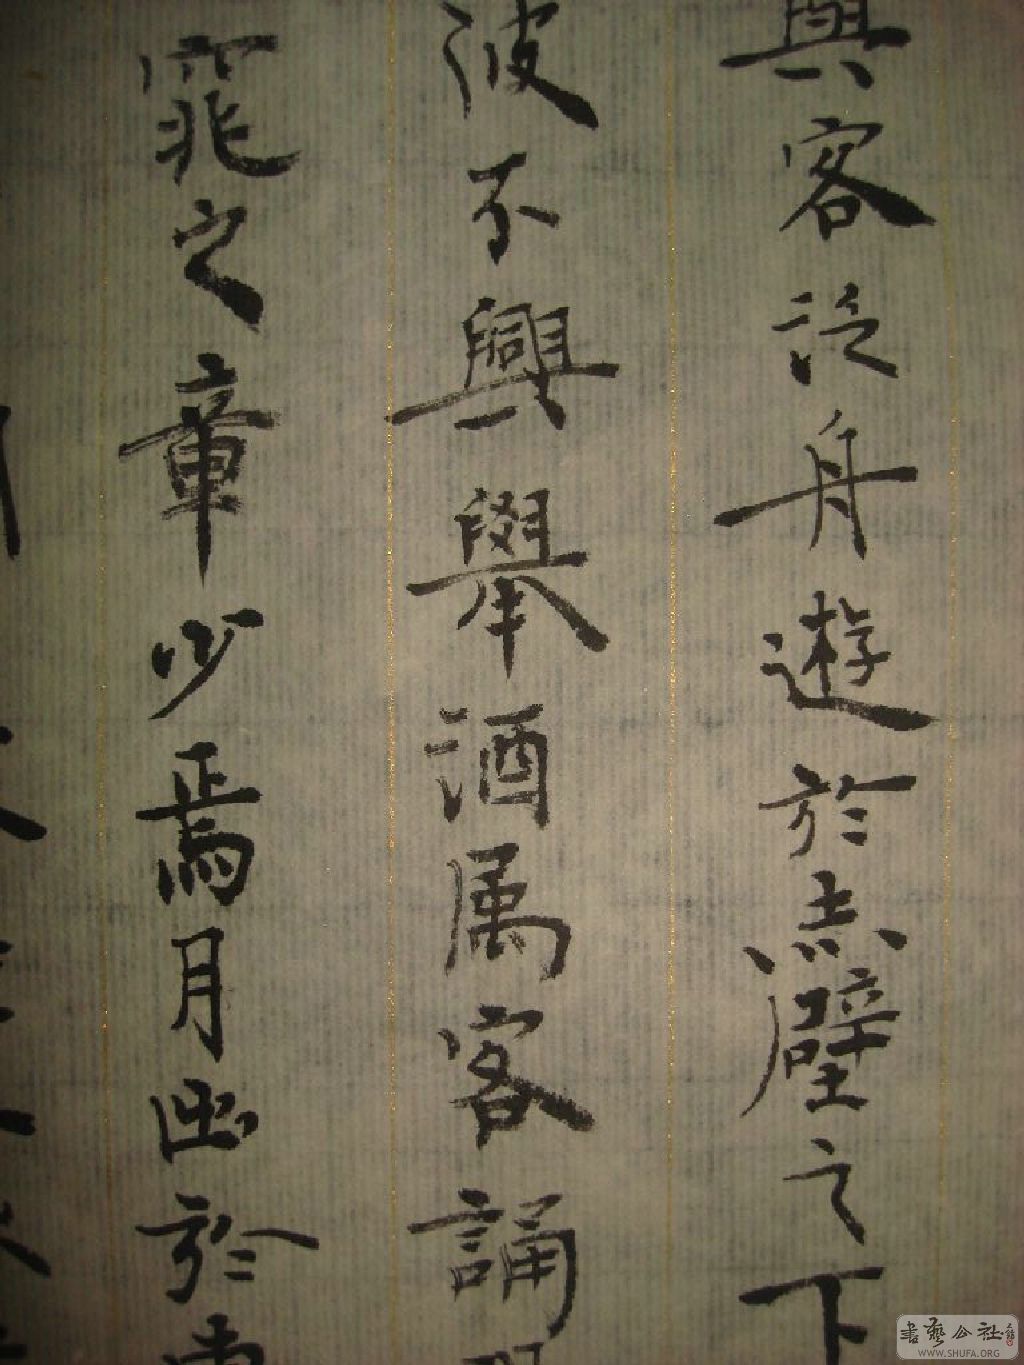 與客泛舟遊於赤壁之下
波不興舉酒属客誦明
窕之章少焉月出於東
書藝公社
WWW.SHUFA.ORG